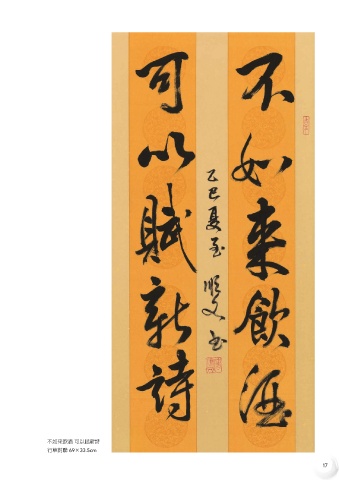 不如来飲酒
可以賦新詩
乙巳夏至 順文书
不如來飲酒 可以賦新詩
行草對聯 69×33.5cm
17